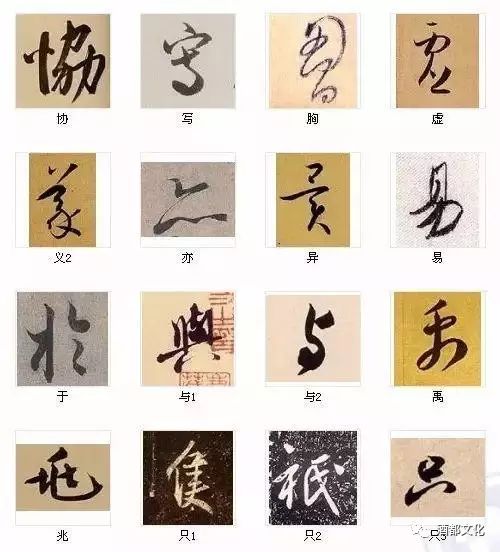 协 写 胸 虚
义2 亦 异 易
于 与1 与2 禹
兆 只1 只2 只3
酒都文化